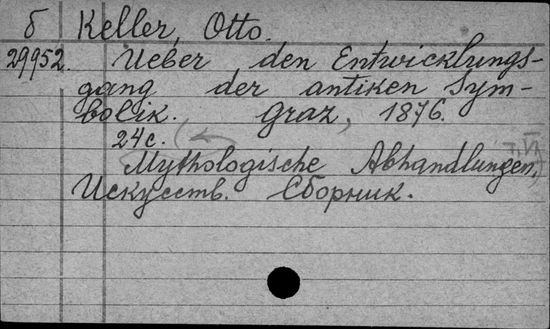 б Keller, Otto.
29952. Ueber den Entwicklungs-
gang der antiken Sym-
bolik. Graz, 1876.
24 с.
Mythologische Abhandlungen,
Искусств. Сборник.